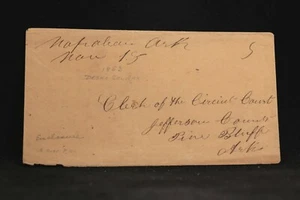 Napoleon Ark
Nov 15
5
1852
Clerk of the Circuit Court
Jefferson County
Pine Bluff
Ark